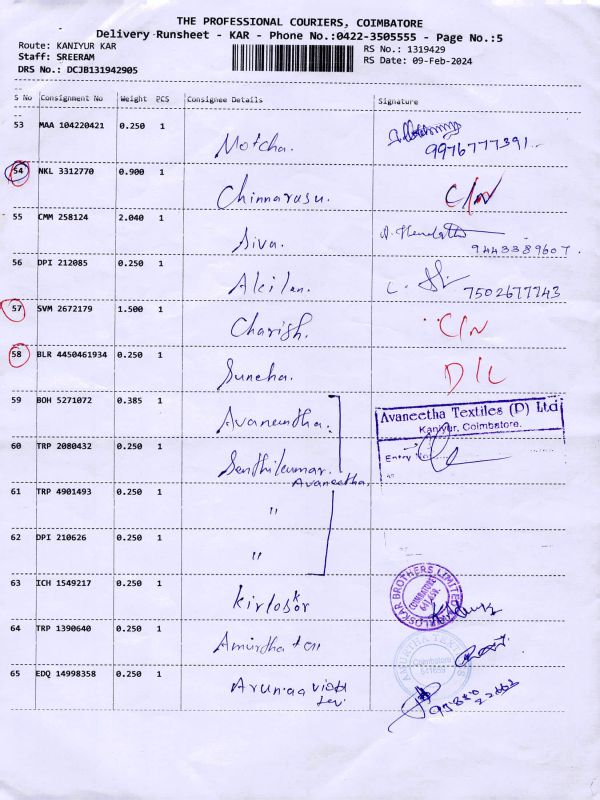 THE PROFESSIONAL COURIERS, COIMBATORE
Delivery Runsheet - KAR - Phone No.:0422-3505555 - Page No.:5
Route: KANIYUR KAR
RS No.: 1319429
Staff: SREERAM
RS Date: 09-Feb-2024
DRS No.: DCJB131942905
S No Consignment No Weight PCS Consignee Details Signature
53 MAA 104220421 0.250 1 Motcha.
9976777391
54 NKL 3312770 0.900 1 Chinnarasu. C/N
55 CMM 258124 2.040 1 Siva.
9443389607.
56 DPI 212085 0.250 1 Akilan.
7502677743
57 SVM 2672179 1.500 1 Charish. C/N
58 BLR 4450461934 0.250 1 Suncha. D/L
59 BOH 5271072 0.385 1 Avaneetha.
Avaneetha Textiles (P) Ltd
Kaniyur, Coimbatore.
60 TRP 2080432 0.250 1 Senthilkumar.
Entry No
Avaneetha.
61 TRP 4901493 0.250 1 "
62 DPI 210626 0.250 1 "
63 ICH 1549217 0.250 1 Kirloskar
KIRLOSKAR BROTHERS LIMITED
COIMBATORE
64 TRP 1390640 0.250 1 Amirtha
AMIRTHA TEXTILES
Coimbatore
65 EDQ 14998358 0.250 1